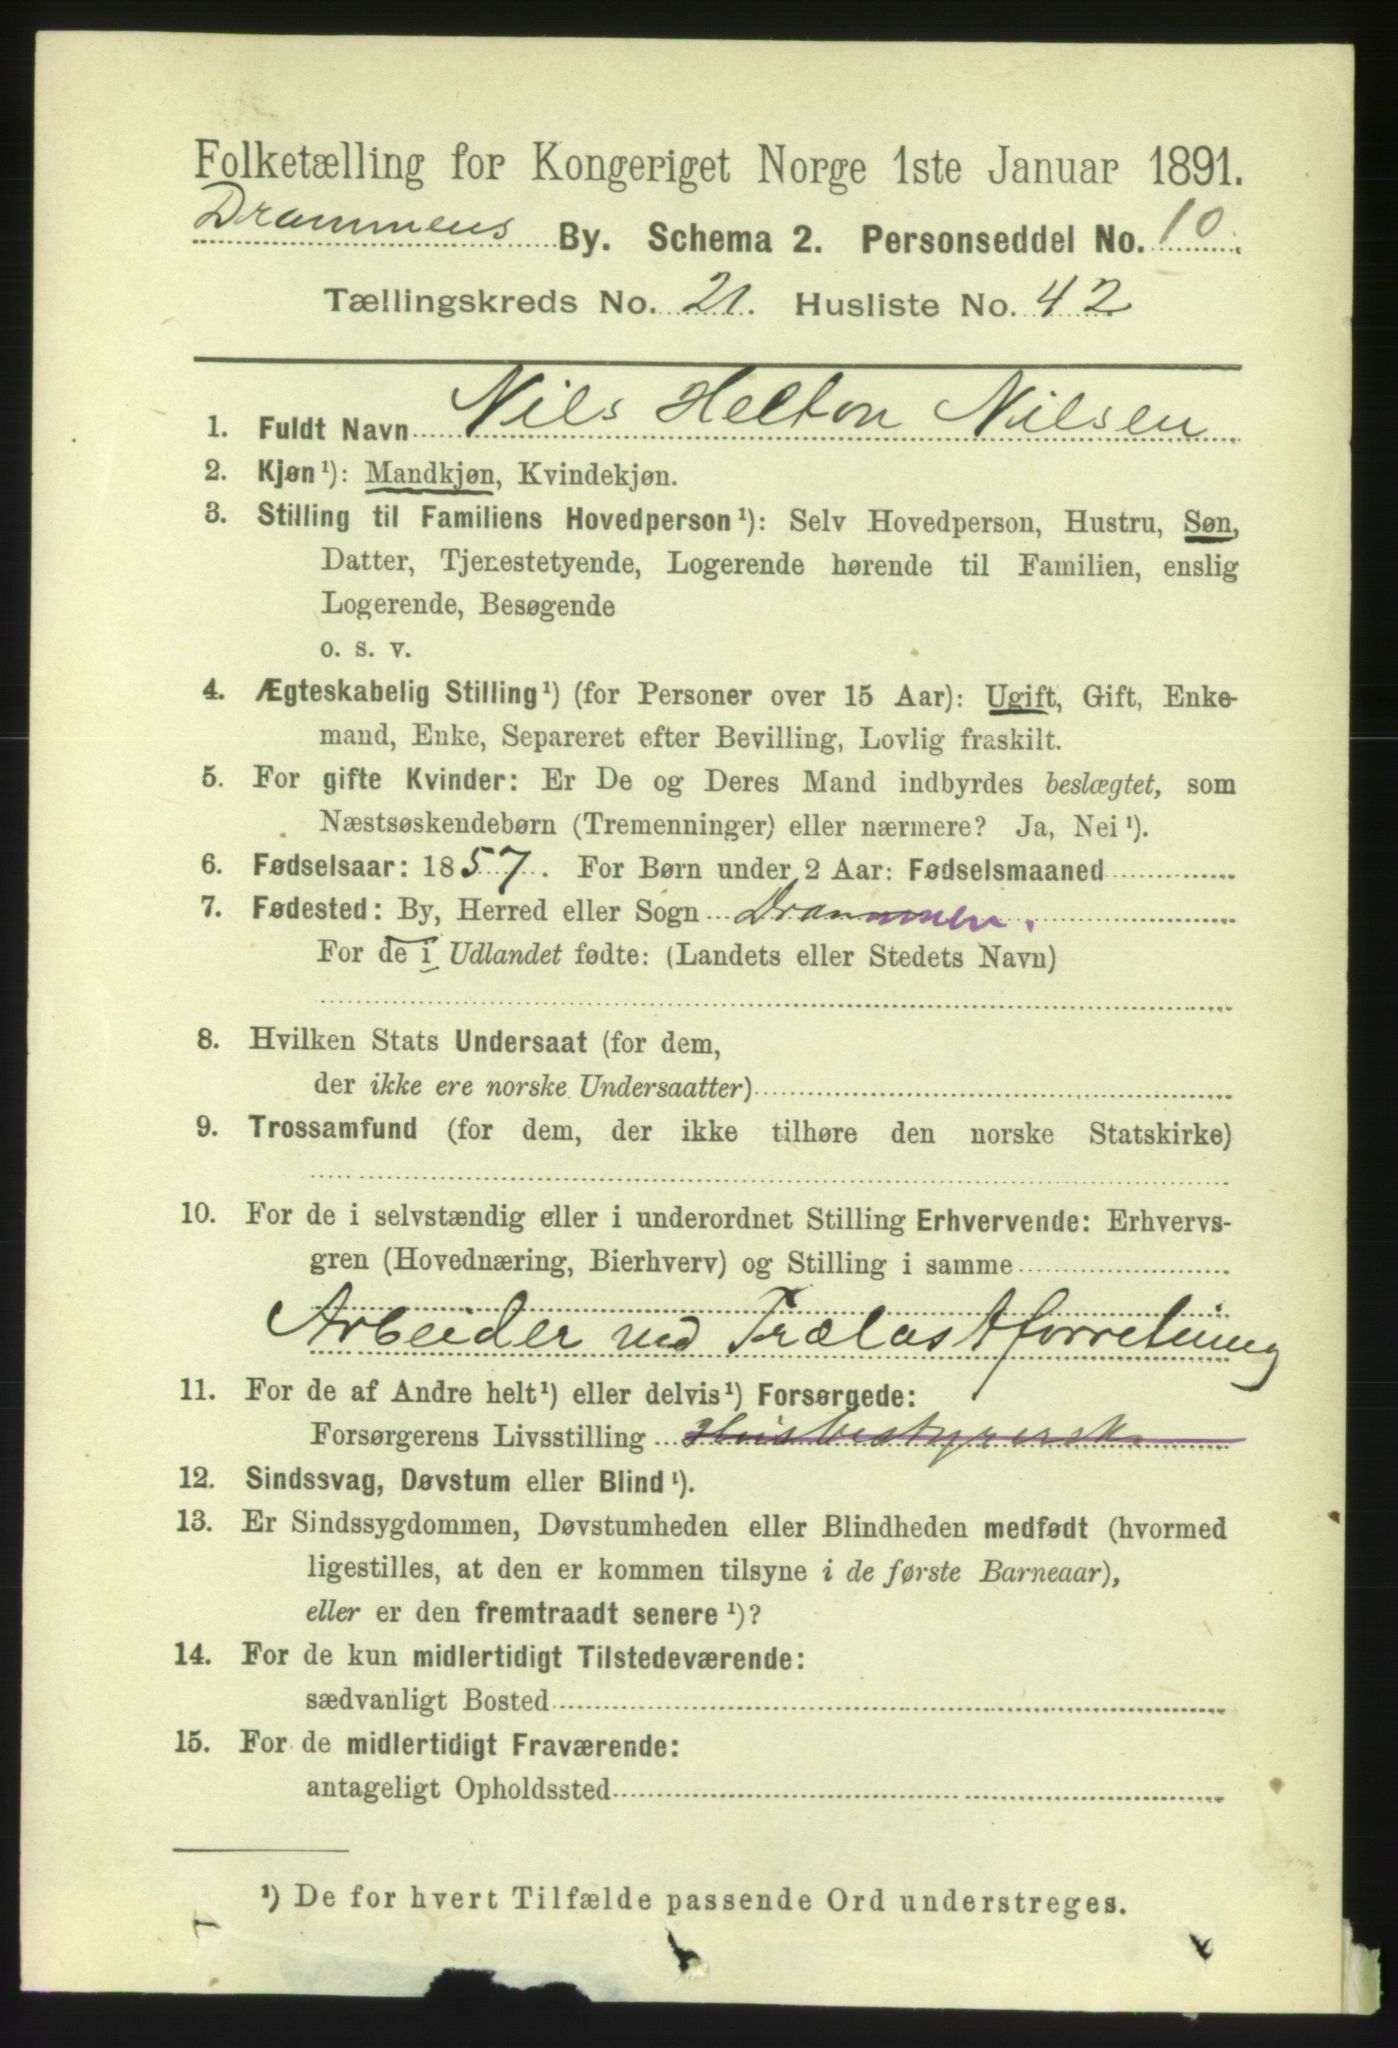 Folketælling for Kongeriget Norge 1ste Januar 1891.
Drammens By. Schema 2. Personseddel No. 10.
Tællingskreds No. 21. Husliste No. 42
1. Fuldt Navn Nils Helton Nilsen
2. Kjøn¹): Mandkjøn, Kvindekjøn.
3. Stilling til Familiens Hovedperson¹): Selv Hovedperson, Hustru, Søn,
Datter, Tjenestetyende, Logerende hørende til Familien, enslig
Logerende, Besøgende
o. s. v.
4. Ægteskabelig Stilling¹) (for Personer over 15 Aar): Ugift, Gift, Enke-
mand, Enke, Separeret efter Bevilling, Lovlig fraskilt.
5. For gifte Kvinder: Er De og Deres Mand indbyrdes beslægtet, som
Næstsøskendebørn (Tremenninger) eller nærmere? Ja, Nei¹).
6. Fødselsaar: 1857. For Børn under 2 Aar: Fødselsmaaned
7. Fødested: By, Herred eller Sogn Drammen.
For de i Udlandet fødte: (Landets eller Stedets Navn)
8. Hvilken Stats Undersaat (for dem,
der ikke ere norske Undersaatter)
9. Trossamfund (for dem, der ikke tilhøre den norske Statskirke)
10. For de i selvstændig eller i underordnet Stilling Erhvervende: Erhvervs-
gren (Hovednæring, Bierhverv) og Stilling i samme
Arbeider ved Trælastforretning
11. For de af Andre helt¹) eller delvis¹) Forsørgede:
Forsørgerens Livsstilling Husbestyrersk
12. Sindssvag, Døvstum eller Blind¹).
13. Er Sindssygdommen, Døvstumheden eller Blindheden medfødt (hvormed
ligestilles, at den er kommen tilsyne i de første Barneaar),
eller er den fremtraadt senere¹)?
14. For de kun midlertidigt Tilstedeværende:
sædvanligt Bosted
15. For de midlertidigt Fraværende:
antageligt Opholdssted
¹) De for hvert Tilfælde passende Ord understreges.